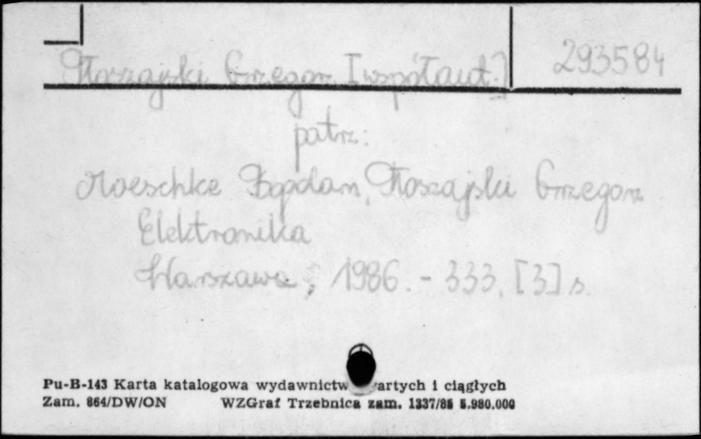 Płoszajski Grzegorz [współaut.] 293584
patrz:
Moeschke Bogdan, Płoszajski Grzegorz
Elektronika
Warszawa, 1986. - 333, [3] s.
Pu-B-143 Karta katalogowa wydawnictw zwartych i ciągłych
Zam. 864/DW/ON WZGraf Trzebnica zam. 1337/85 5.980.000